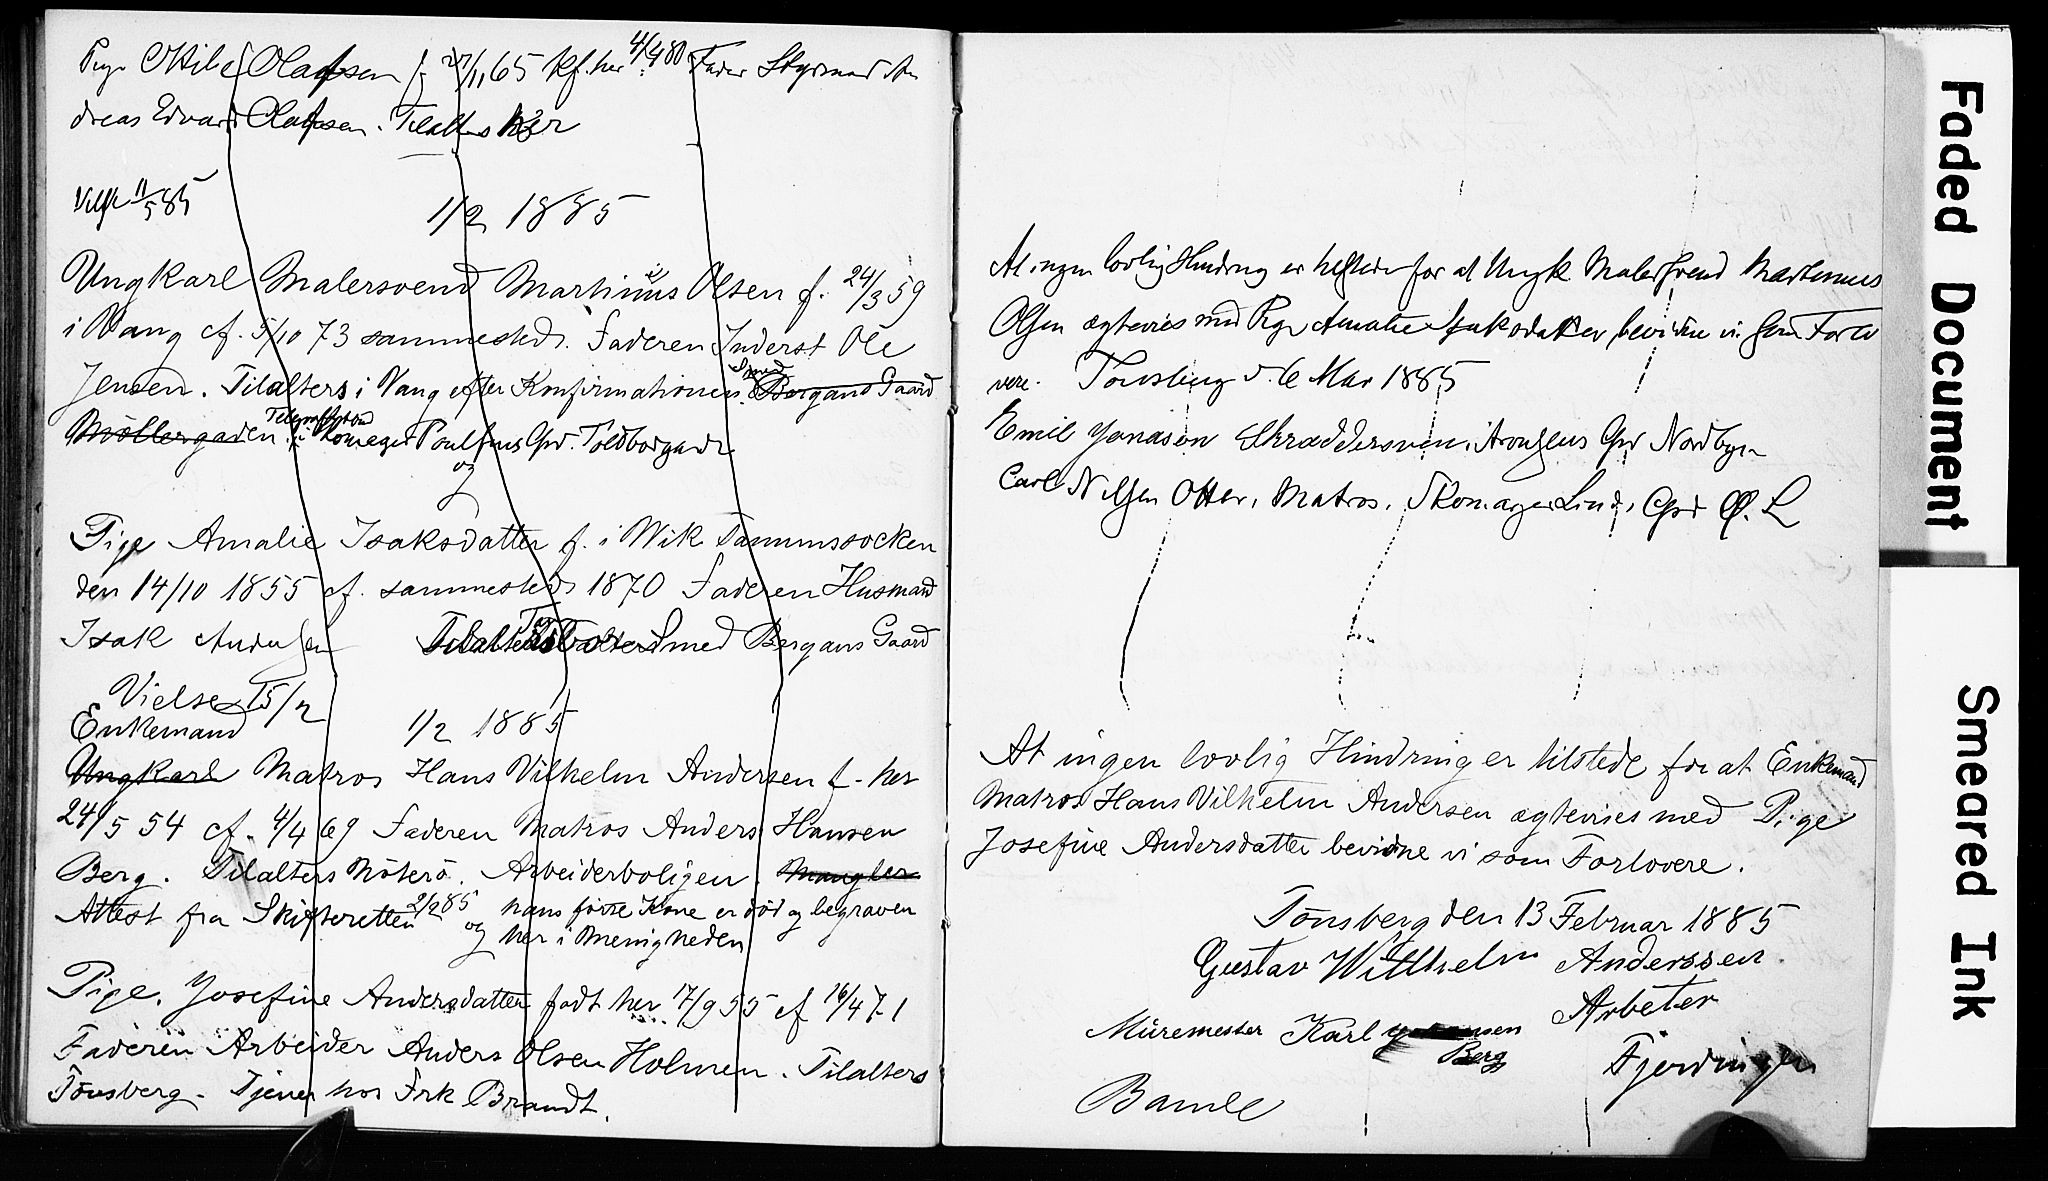 Pige Otilie Olafsen f 27/11 65 kf. her 4/4 80 Fader Styrmand An
dreas Edvard Olafsen. Tilalters her
Viet 11/5 85
1/2 1885
Ungkarl Malersvend Martinius Olsen f. 24/3 59
i Vang cf. 5/10 73 sammesteds. Faderen Inderst Ole
Jensen. Tilalters i Vang efter Konfirmationen. Smed Bergans Gaard
Möllergaden. i Skomager Poulsens Grd. Toldbodgade
og
Pige Amalie Isaksdatter f. i Wik Tanumssocken
den 14/10 1855 cf. sammesteds 1870 Faderen Husmand
Isak Andersen Tilalters Smed Bergans Gaard
Vielse 15/2
Enkemand 1/2 1885
Ungkarl Matros Hans Vilhelm Andersen f. her
24/5 54 cf. 4/4 69 Faderen Matros Anders Hansen
Berg. Tilalters Nöterö. Arbeiderboligen. Mangler
Attest fra Skifteretten 2/2 85 og hans förste Kone er död og begraven
her i Menigheden
Pige. Josefine Andersdatter födt her 17/9 55 cf 16/4 71
Faderen Arbeider Anders Olsen Holmen. Tilalters
Tönsberg. Tjener hos Frk Brandt.
At ingen lovlig Hindring er tilstede for at Ungk Malersvend Martinius
Olsen ægtevies med Pige Amalie Isaksdatter, bevidne vi som Forlo
vere. Tönsberg d. 6 Mar 1885
Emil Jonason Skræddersven, Grd Nordbyen
Carl Nilsen Otter, Matros, Skomager Lind, Grd Ö. L
At ingen lovlig Hindring er tilstede for at Enkemand
Matros Hans Vilhelm Andersen ægtevies med Pige
Josefine Andersdatter bevidne vi som Forlovere.
Tönsberg den 13 Februar 1885
Gustav Willhelm Anderssen.
Arbeter
Müremester Karl Johansen
Berg
Fjerdingen
Bamle
Faded Document
Smeared Ink